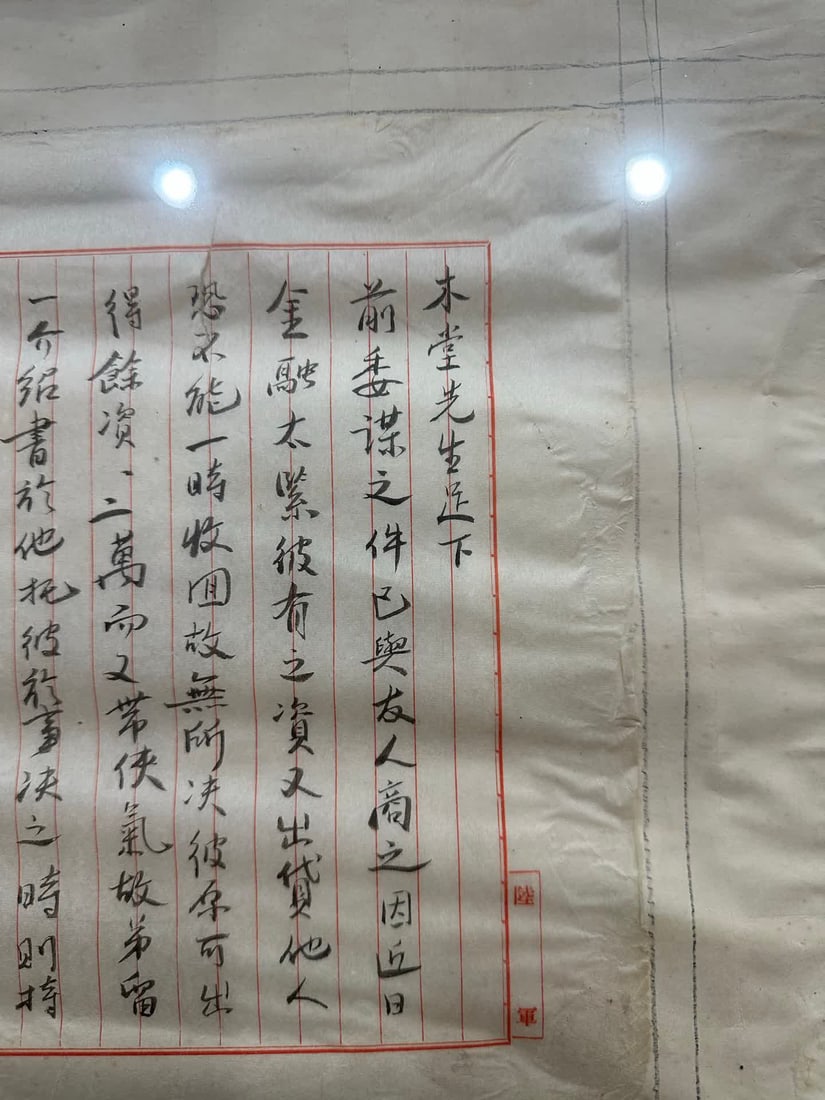 木堂先生足下
前委謀之件已與友人商之因近日
金融太緊彼有之資又出貸他人
恐不能一時收囬故無所决彼原可出
得餘資一二萬而又帶俠氣故弟留
一介紹書於他托彼於事决之時則持
陸軍